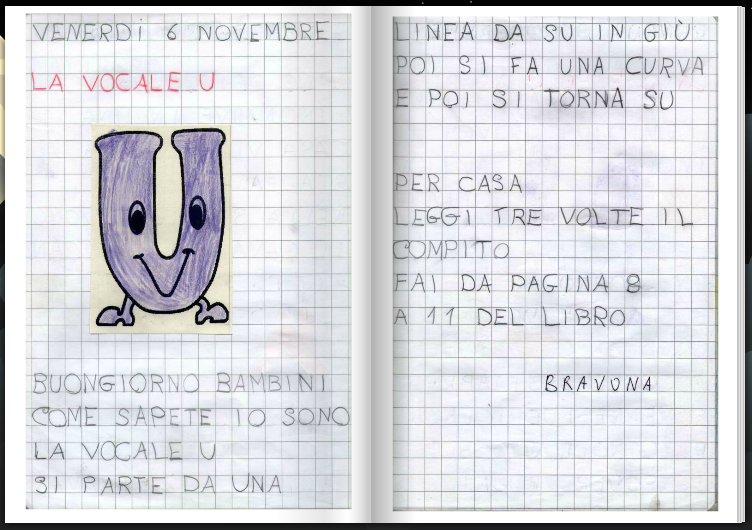 VENERDÌ 6 NOVEMBRE
LA VOCALE U
BUONGIORNO BAMBINI
COME SAPETE IO SONO
LA VOCALE U
SI PARTE DA UNA
LINEA DA SU IN GIÙ
POI SI FA UNA CURVA
E POI SI TORNA SU
PER CASA
LEGGI TRE VOLTE IL
COMPITO
FAI DA PAGINA 8
A 11 DEL LIBRO
BRAVONA